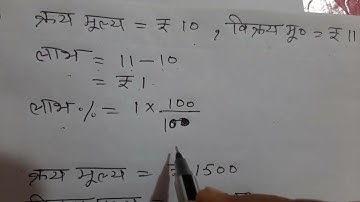 क्रय मूल्य = ₹ 10 , विक्रय मू० = ₹ 11
लाभ = 11 - 10
= ₹ 1
लाभ % = 1 × 100/10
क्रय मूल्य = ₹ 1500